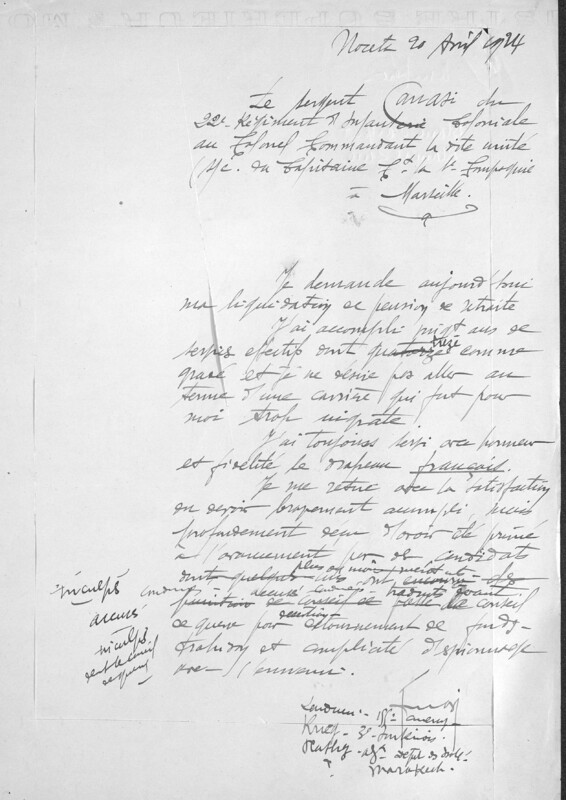 20 Avril 1924
Le sergent Canasi du
22e Régiment d'Infanterie Coloniale
au Colonel Commandant la dite unité
du Capitaine Ct la Compagnie
à Marseille.
Je demande aujourd'hui
ma liquidation de pension de retraite
J'ai accompli vingt ans de
effectifs dont quatorze treize comme
gradé et je ne désire pas aller au
terme d'une carrière qui fut pour
moi trop ingrate.
J'ai toujours servi avec honneur
et fidélité le drapeau français.
Je me retire avec la satisfaction
du devoir bravement accompli, mais
profondément déçu d'avoir été primé
à l'avancement par des candidats
dont quelques uns ont
de conseil
de guerre pour détournement de fonds
trahison et complicité d'espionnage
avec l'ennemi.
inculpés
accusés
inculpés
Marakech.